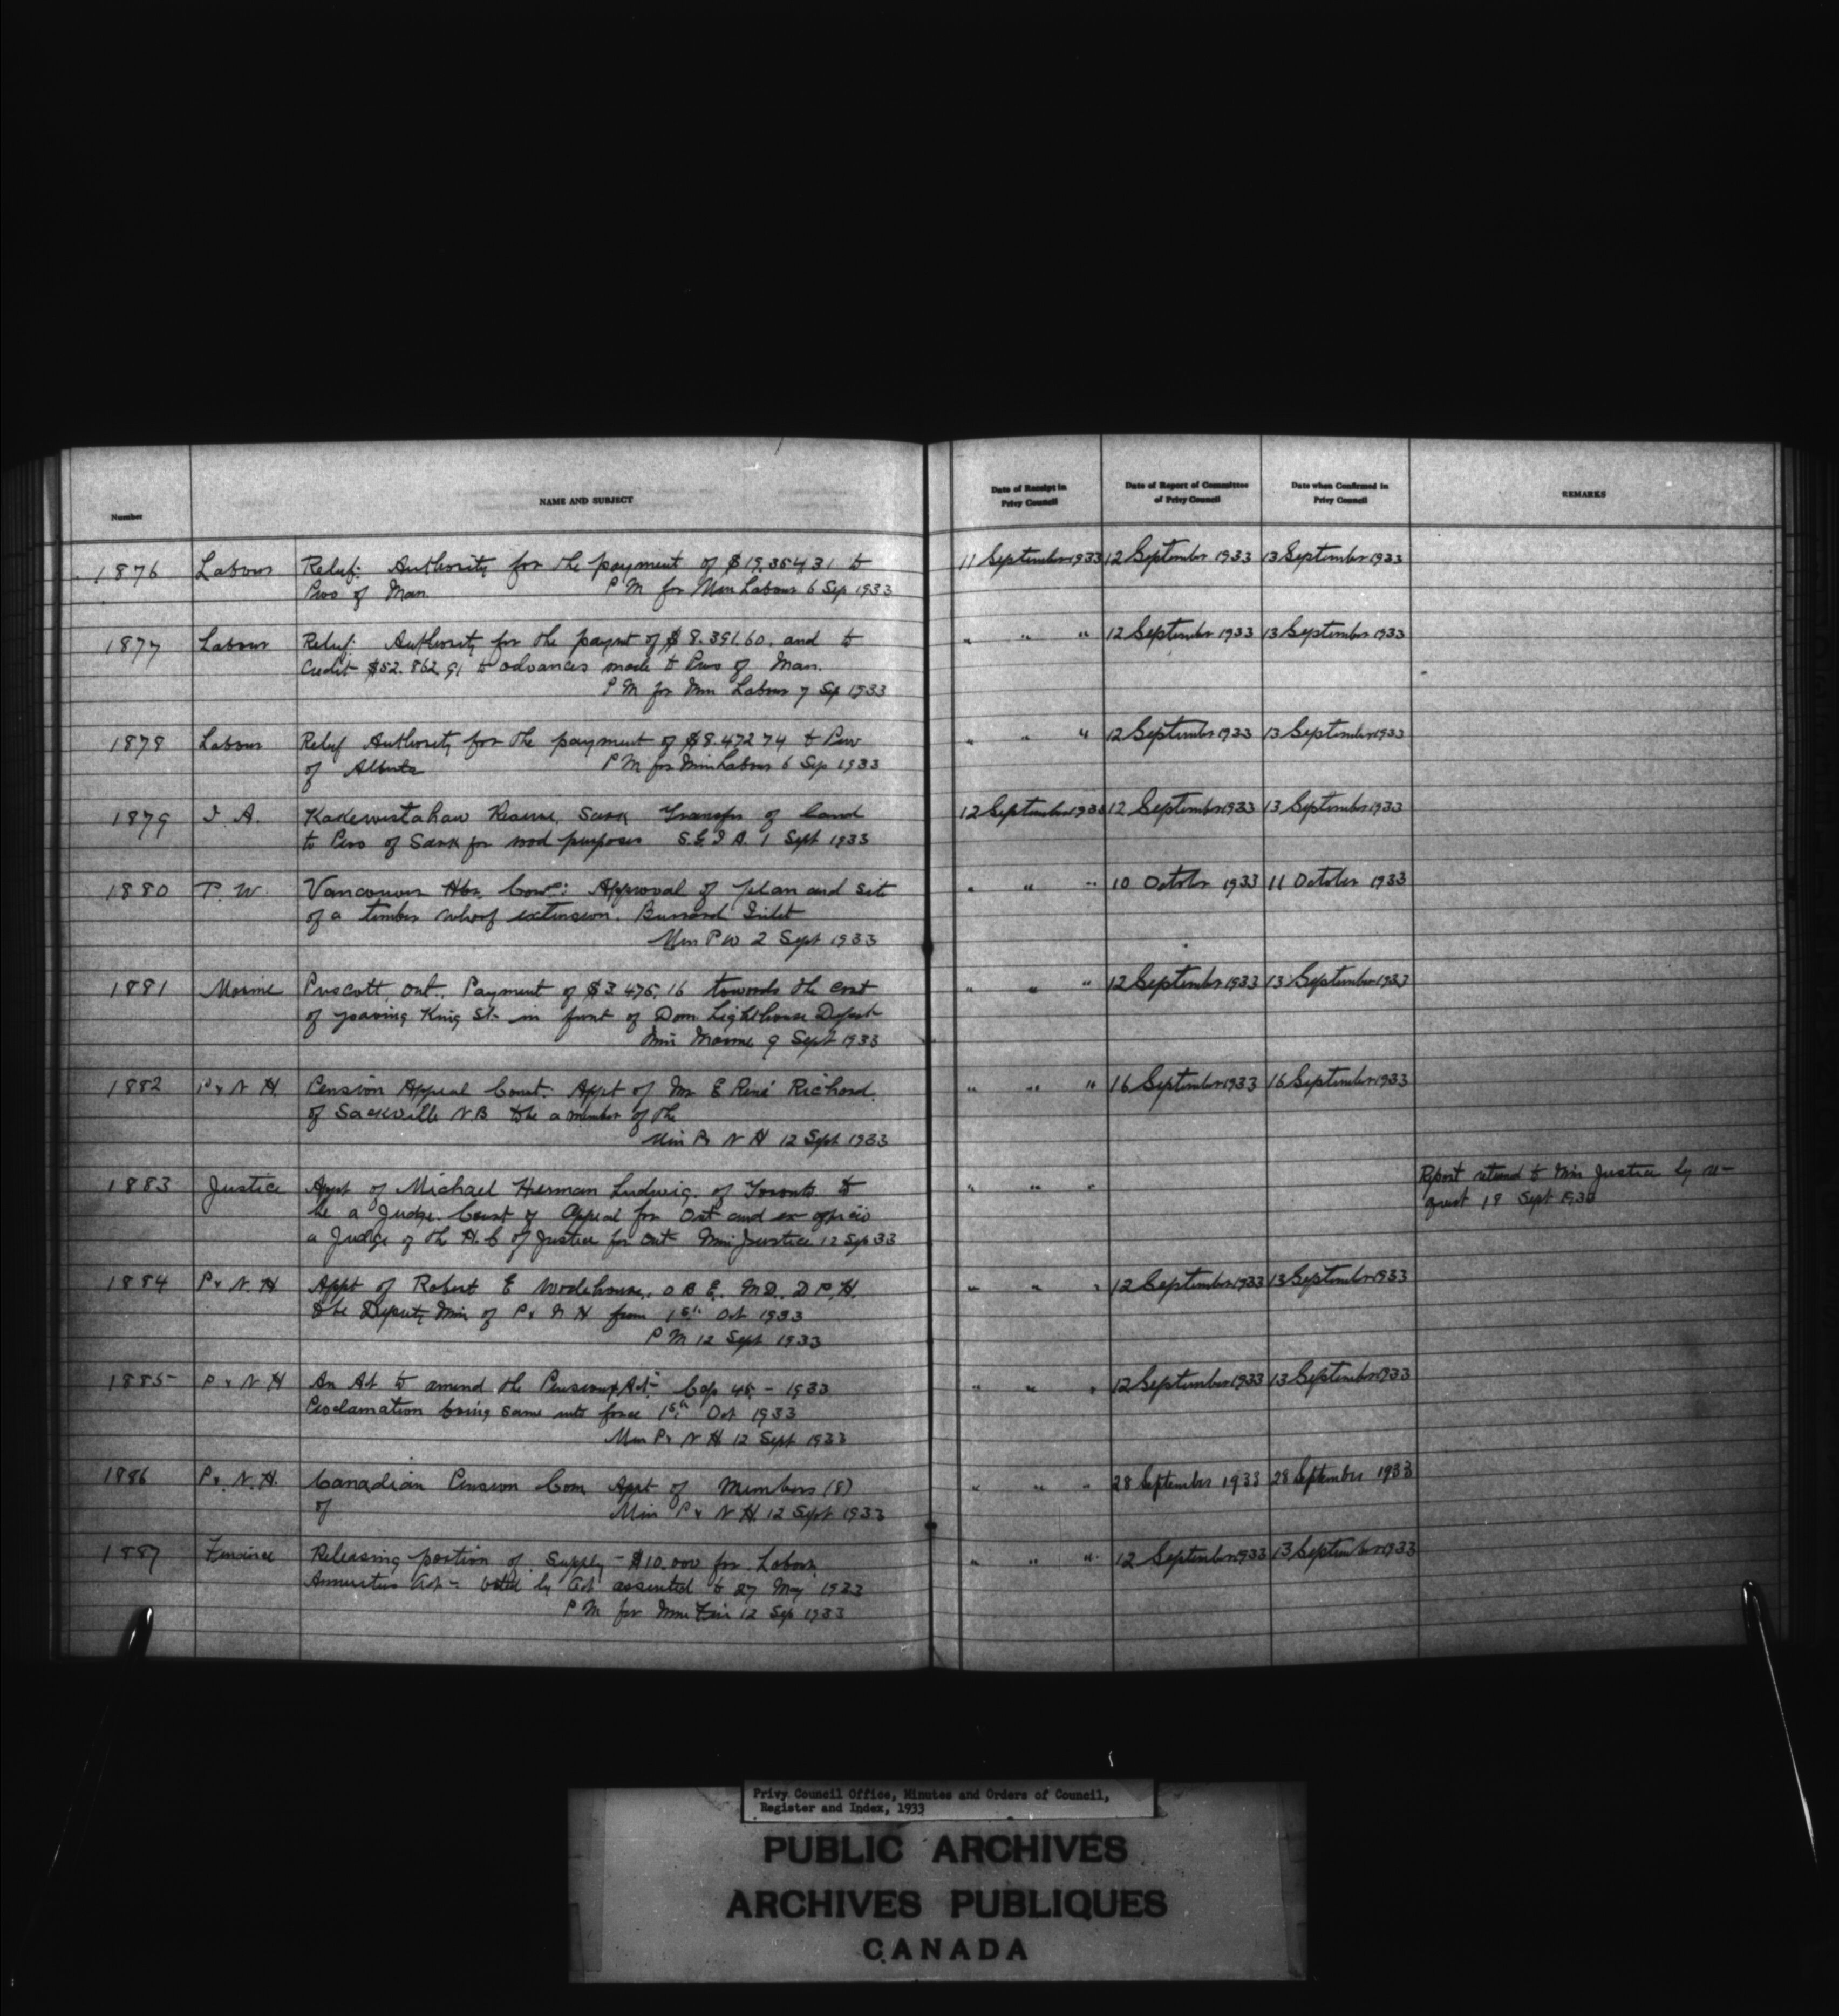 Number
NAME AND SUBJECT
Date of Receipt in Privy Council
Date of Report of Committee of Privy Council
Date when Confirmed in Privy Council
REMARKS
1876 Labour Relief: Authority for the payment of $19,354.31 to 11 September 1933 12 September 1933 13 September 1933
Prov of Man. P M for Min Labour 6 Sep 1933
1877 Labour Relief: Authority for the paymt of $8.391.60. and to " " " 12 September 1933 13 September 1933
Credit $52.862.91 to advances made to Prov of Man.
P M for Min Labour 7 Sep 1933
1878 Labour Relief Authority for the payment of $8.472 74 to Prov " " " 12 September 1933 13 September 1933
of Alberta P M for Min Labour 6 Sep 1933
1879 I. A. Kakewistahaw Reserve, Sask Transfer of land 12 September 1933 12 September 1933 13 September 1933
to Prov of Sask for road purposes S.G.I A. 1 Sept 1933
1880 P. W. Vancouver Hbr. Comrs: Approval of plan and site " " " 10 October 1933 11 October 1933
of a timber wharf extension. Burrard Inlet
Min P W 2 Sept 1933
1881 Marine Prescott, Ont. Payment of $3 476.16 towards the cost " " " 12 September 1933 13 September 1933
of paving King St. in front of Dom Lighthouse Depot
Min Marine 9 Sept 1933
1882 P & N H. Pension Appeal Court. Appt of Mr E René Richard. " " " 16 September 1933 16 September 1933
of Sackville N.B to be a member of the
Min P & N H 12 Sept 1933
1883 Justice Appt of Michael Herman Ludwig, of Toronto to " " " Report returned to Min Justice by re-
be a Judge. Court of Appeal for Ont and ex officio quest 18 Sept 1933
a Judge of the H. C of Justice for Ont Min Justice 12 Sep 33
1884 P & N. H Appt of Robert E Wodehouse, O B E. M D. D P. H. " " " 12 September 1933 13 September 1933
to be Deputy Min of P & N H from 1st Oct 1933
P M 12 Sept 1933
1885 P & N H An Act to amend the Pension Act - Cap 45 - 1933 " " " 12 September 1933 13 September 1933
Proclamation bring same into force 1st Oct 1933
Min P & N H 12 Sept 1933
1886 P & N. H. Canadian Pension Com Appt of Members (8) " " " 28 September 1933 28 September 1933
of Min P & N H 12 Sept 1933
1887 Finance Releasing portion of Supply - $10.000 for Labour " " " 12 September 1933 13 September 1933
Annuities Act - voted by Act assented to 27 May 1933
P M for Min Fin 12 Sep 1933
Privy Council Office, Minutes and Orders of Council,
Register and Index, 1933
PUBLIC ARCHIVES
ARCHIVES PUBLIQUES
CANADA